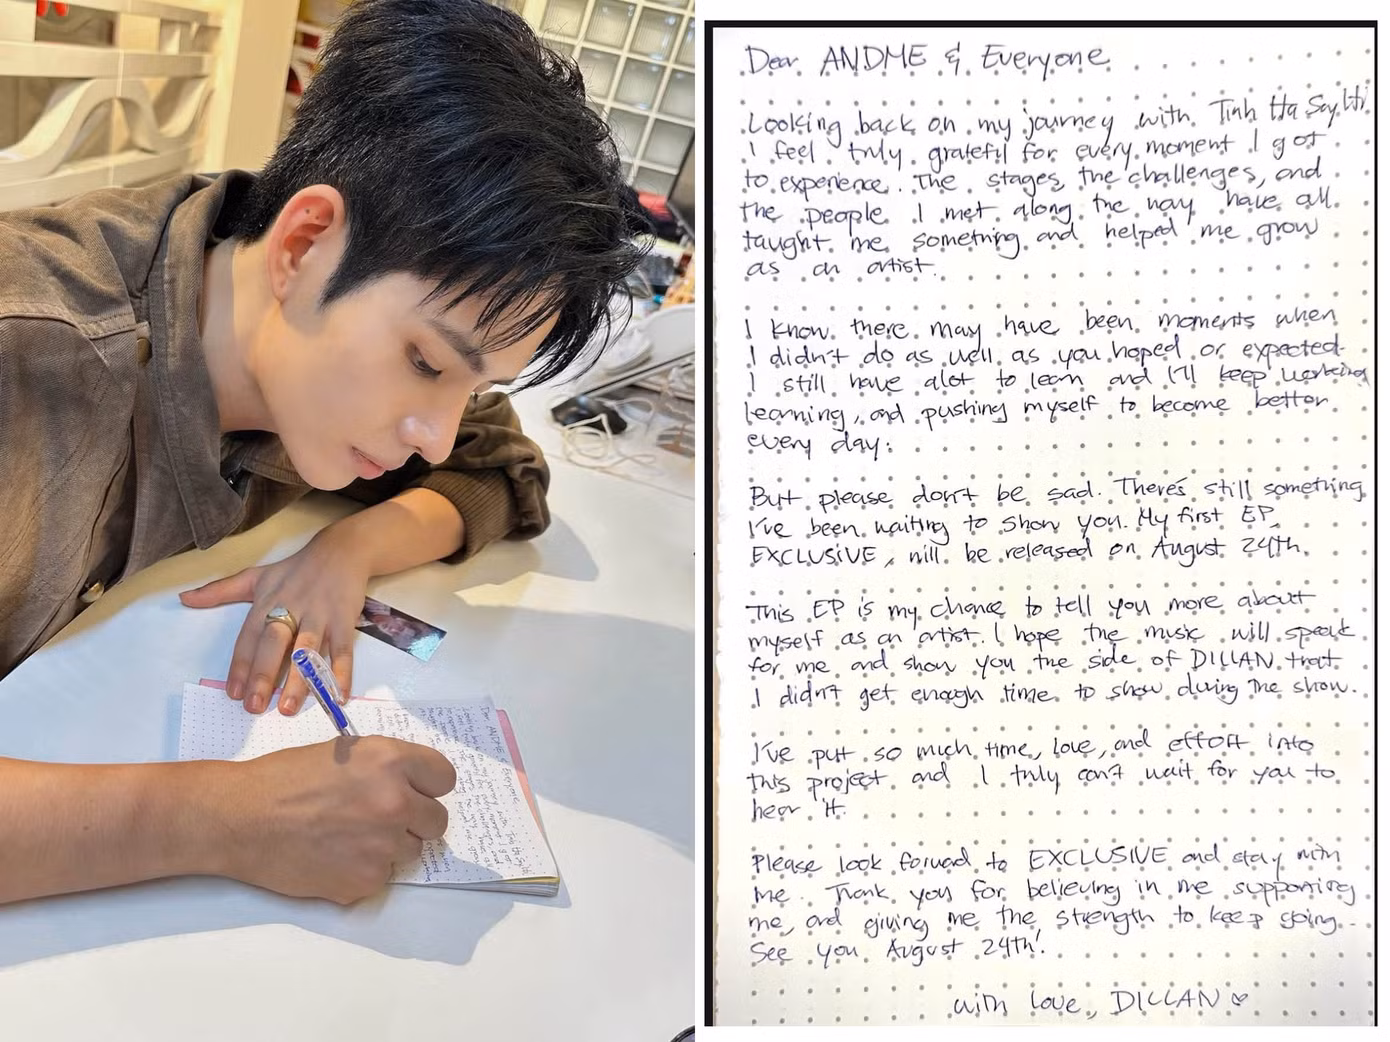 Dear ANDME & Everyone
Looking back on my journey with Tinh Ha Say Hi,
I feel truly grateful for every moment I got
to experience. The stages, the challenges, and
the people I met along the way have all
taught me something and helped me grow
as an artist.
I know there may have been moments when
I didn't do as well as you hoped or expected.
I still have alot to learn and I'll keep working
learning, and pushing myself to become better
every day.
But please don't be sad. There's still something
I've been waiting to show you. My first EP,
EXCLUSIVE, will be released on August 24th.
This EP is my chance to tell you more about
myself as an artist. I hope the music will speak
for me and show you the side of DILLAN that
I didn't get enough time to show during the show.
I've put so much time, love, and effort into
this project and I truly can't wait for you to
hear it.
Please look forward to EXCLUSIVE and stay with
me. Thank you for believing in me supporting
me, and giving me the strength to keep going..
See you August 24th!
with love, DILLAN ♡